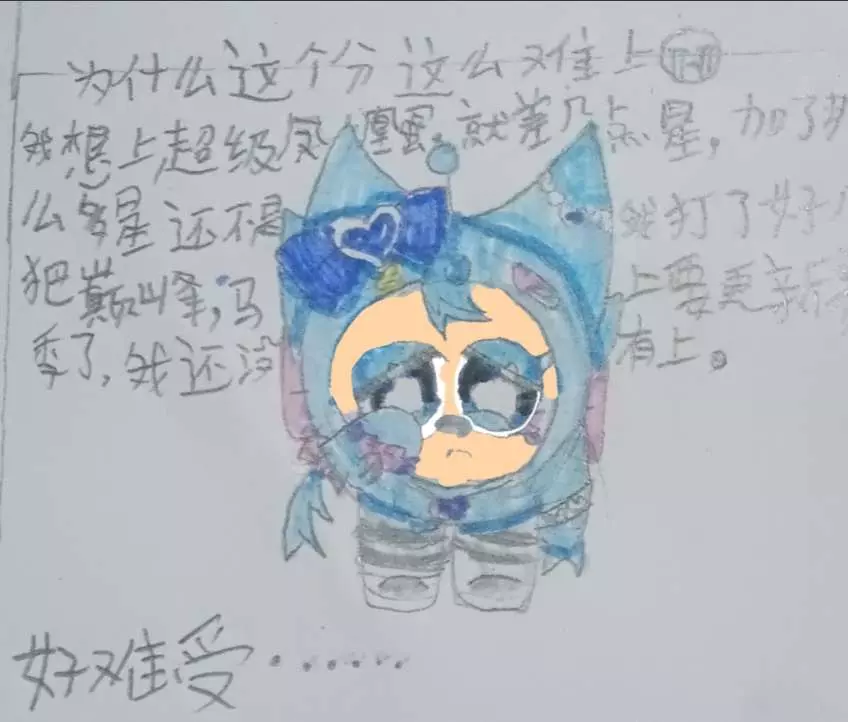 为什么这个分这么难上
我想上超级凤凰蛋,就差几点星,加了
么多星还不是 我打了好
把巅峰,马 上要更新
季了,我还没 有上。
好难受······